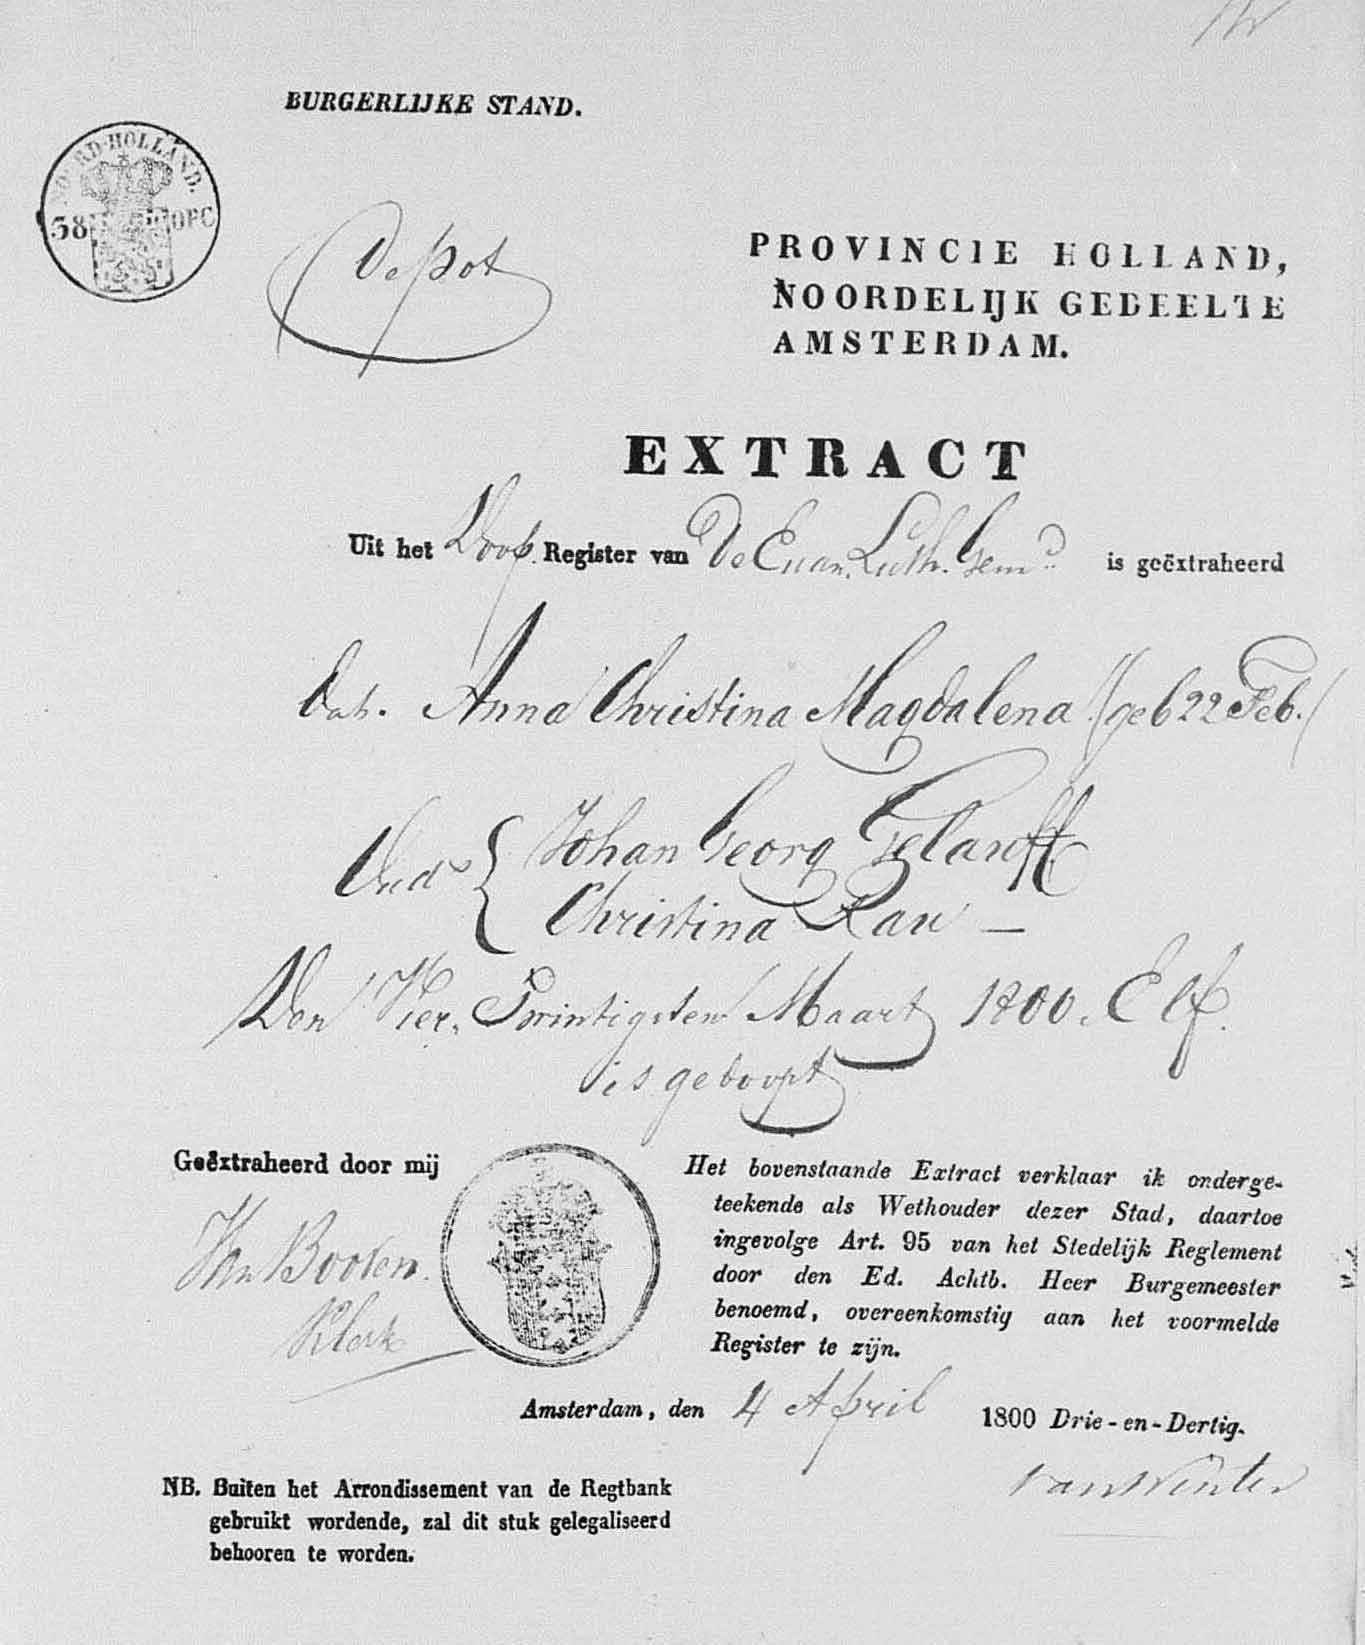 BURGERLIJKE STAND.
NOORD-HOLLAND.
38 OPC
Depot
PROVINCIE HOLLAND,
NOORDELIJK GEDEELTE
AMSTERDAM.
EXTRACT
Uit het Doop Register van De Evan. Luth. Gem. is geëxtraheerd
Dat. Anna Christina Magdalena (geb 22 Feb.)
Oud. { Johan Georg
Christina Rau —
Den Vier Twintigsten Maart 1800. Elf.
is gedoopt
Geëxtraheerd door mij
Booten.
Klerk
Het bovenstaande Extract verklaar ik onderge-
teekende als Wethouder dezer Stad, daartoe
ingevolge Art. 95 van het Stedelijk Reglement
door den Ed. Achtb. Heer Burgemeester
benoemd, overeenkomstig aan het voormelde
Register te zijn.
Amsterdam, den 4 April 1800 Drie-en-Dertig.
van Winter
NB. Buiten het Arrondissement van de Regtbank
gebruikt wordende, zal dit stuk gelegaliseerd
behooren te worden.